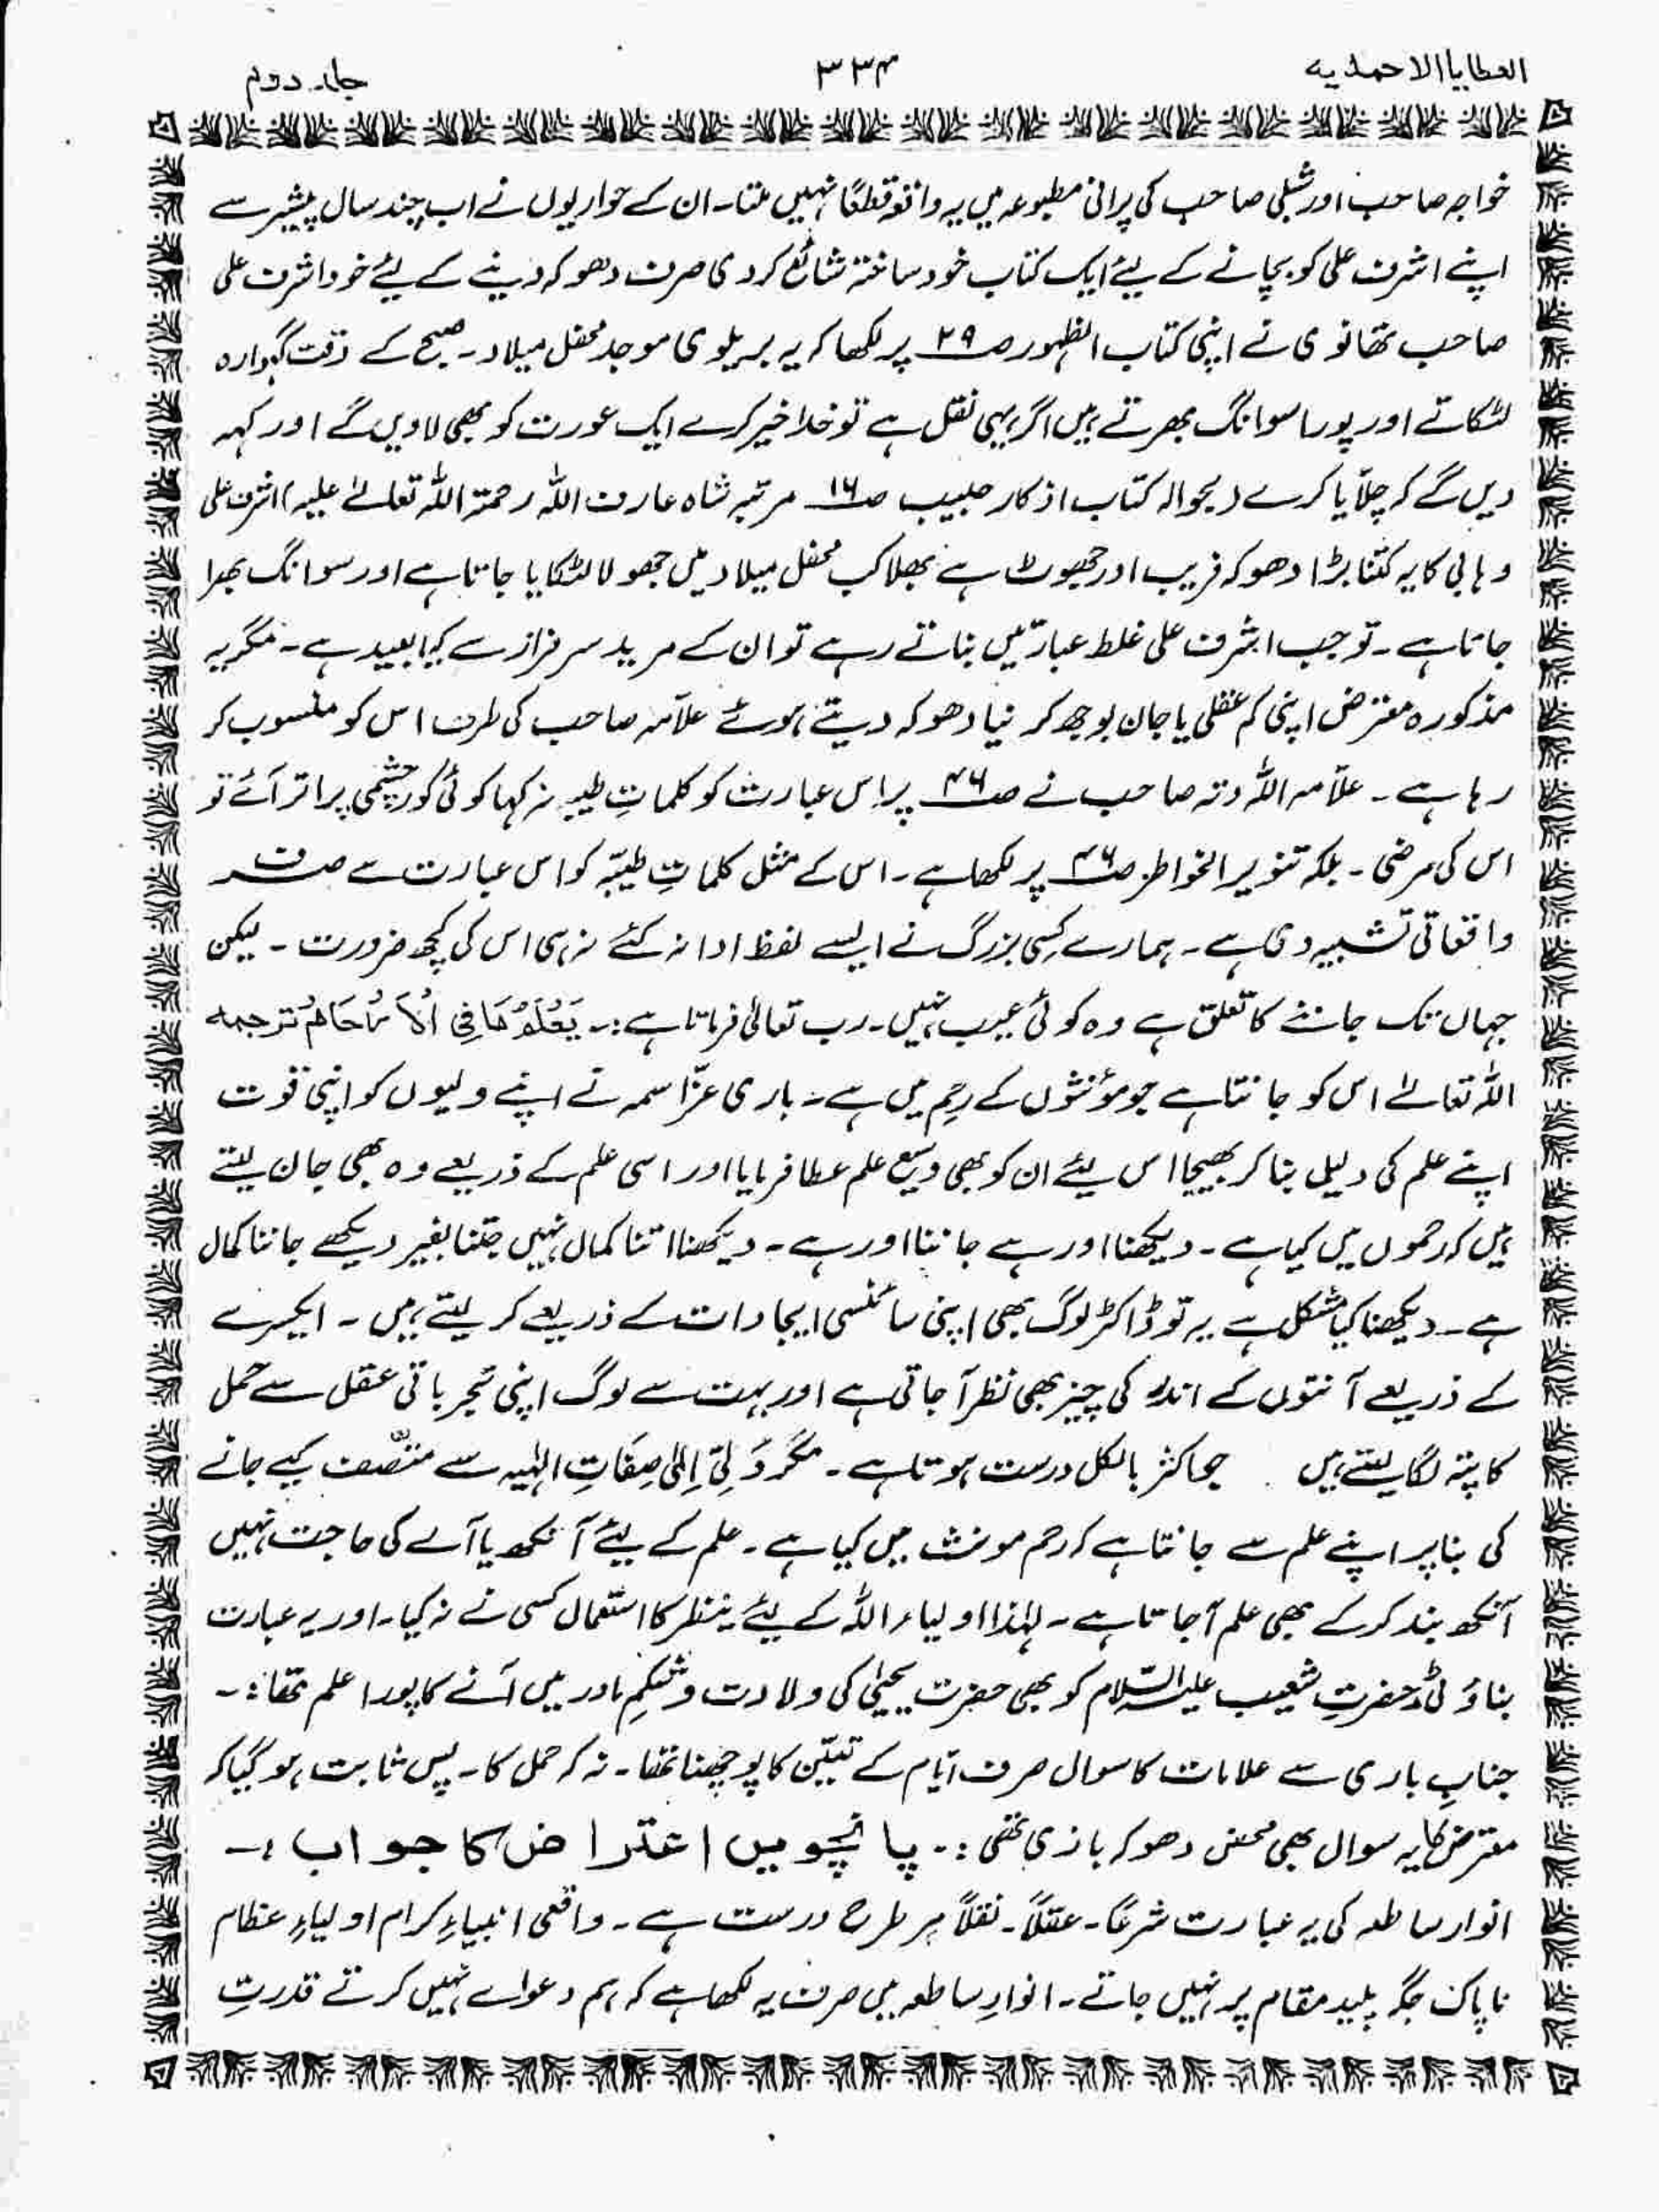 العطایا الاحمدیہ
۳۳۴
جلد دوم
خواجہ صاحب اور شبلی صاحب کی پرانی مطبوعہ میں یہ واقعہ قطعًا نہیں ملتا۔ ان کے حواریوں نے اب چند سال پیشتر سے
اپنے اشرف علی کو بچانے کے لیئے ایک کتاب خود ساختہ شائع کردی صرف دھوکہ دینے کے لیئے خود اشرف علی
صاحب تھانوی نے اپنی کتاب الظہور صـ۲۹ پر لکھا کہ یہ بریلوی موجد محفل میلاد۔ صبح کے وقت گہوارہ
لٹکاتے اور پورا سوانگ بھرتے ہیں اگر یہی نقل ہے تو خدا خیر کرے ایک عورت کو بھی لاویں گے اور کہہ
دیں گے کہ چلّایا کرے (بحوالہ کتاب اذکار حبیب صـ۱۶ مرتبہ شاہ عارف اللہ رحمتہ اللہ تعالےٰ علیہ) اشرف علی
وہابی کا یہ کتنا بڑا دھوکہ فریب اور جھوٹ ہے بھلا کب محفل میلاد میں جھولا لٹکایا جاتا ہے اور سوانگ بھرا
جاتا ہے۔ تو جب اشرف علی غلط عبارتیں بناتے رہے تو ان کے مرید سرفراز سے کیا بعید ہے۔ مگر یہ
مذکورہ معترض اپنی کم عقلی یا جان بوجھ کر نیا دھوکہ دیتے ہوئے علاّمہ صاحب کی طرف اس کو منسوب کر
رہا ہے۔ علاّمہ اللہ دتہ صاحب نے صـ۴۶ پر اس عبارت کو کلماتِ طیبہ نہ کہا کوئی کور چشمی پر اتر آئے تو
اس کی مرضی۔ بلکہ تنویر الخواطر صـ۴۶ پر لکھا ہے۔ اس کے مثل کلماتِ طیبّہ کو اس عبارت سے صرف
واقعاتی تشبیہ دی ہے۔ ہمارے کسی بزرگ نے ایسے لفظ ادا نہ کئے نہ ہی اس کی کچھ ضرورت۔ لیکن
جہاں تک جاننے کا تعلق ہے وہ کوئی عیب نہیں۔ رب تعالیٰ فرماتا ہے:۔ یَعْلَمُ مَا فِی الْاَرْحَامُ ترجمہ
اللہ تعالےٰ اس کو جانتا ہے جو مؤنثوں کے رحِم میں ہے۔ باری عزّ اسمہ نے اپنے ولیوں کو اپنی قوت
اپنے علم کی دلیل بنا کر بھیجا اس لیئے ان کو بھی وسیع علم عطا فرمایا اور اسی علم کے ذریعے وہ بھی جان لیتے
ہیں کہ رحموں میں کیا ہے۔ دیکھنا اور ہے جاننا اور ہے۔ دیکھنا اتنا کمال نہیں جتنا بغیر دیکھے جاننا کمال
ہے۔ دیکھنا کیا مشکل ہے یہ تو ڈاکٹر لوگ بھی اپنی سائنسی ایجادات کے ذریعے کر لیتے ہیں۔ ایکسرے
کے ذریعے آنتوں کے اندر کی چیز بھی نظر آ جاتی ہے اور بہت سے لوگ اپنی تجرباتی عقل سے حمل
کا پتہ لگا لیتے ہیں جو اکثر بالکل درست ہوتا ہے۔ مگر وَلِیّ اِلٰی صِفَاتِ الہٰیہ سے متصّف کیے جانے
کی بنا پر اپنے علم سے جانتا ہے کہ رحم مونث میں کیا ہے۔ علم کے لیئے آنکھ یا آلے کی حاجت نہیں
آنکھ بند کر کے بھی علم آ جاتا ہے۔ لہٰذا اولیاء اللہ کے لیئے ینظر کا استعمال کسی نے نہ کیا۔ اور یہ عبارت
بناوٹی ہے حضرتِ شعیب علیہ السّلام کو بھی حضرت یحییٰ کی ولادت و شکمِ مادر میں آنے کا پورا علم تھا:۔
جنابِ باری سے علامات کا سوال صرف ایّام کے تعیّن کا پوچھنا تھا۔ نہ کہ حمل کا۔ پس ثابت ہو گیا کہ
معترض کا یہ سوال بھی محض دھوکہ بازی تھی:۔ پانچویں اعتراض کا جواب:۔
انوار ساطعہ کی یہ عبارت شرعًا۔ عقلًا۔ نقلًا ہر طرح درست ہے۔ واقعی انبیاءِ کرام اولیاءِ عظام
ناپاک جگہ پلید مقام پر نہیں جاتے۔ انوارِ ساطعہ میں صرف یہ لکھا ہے کہ ہم دعوٰے نہیں کرتے قدرتِ